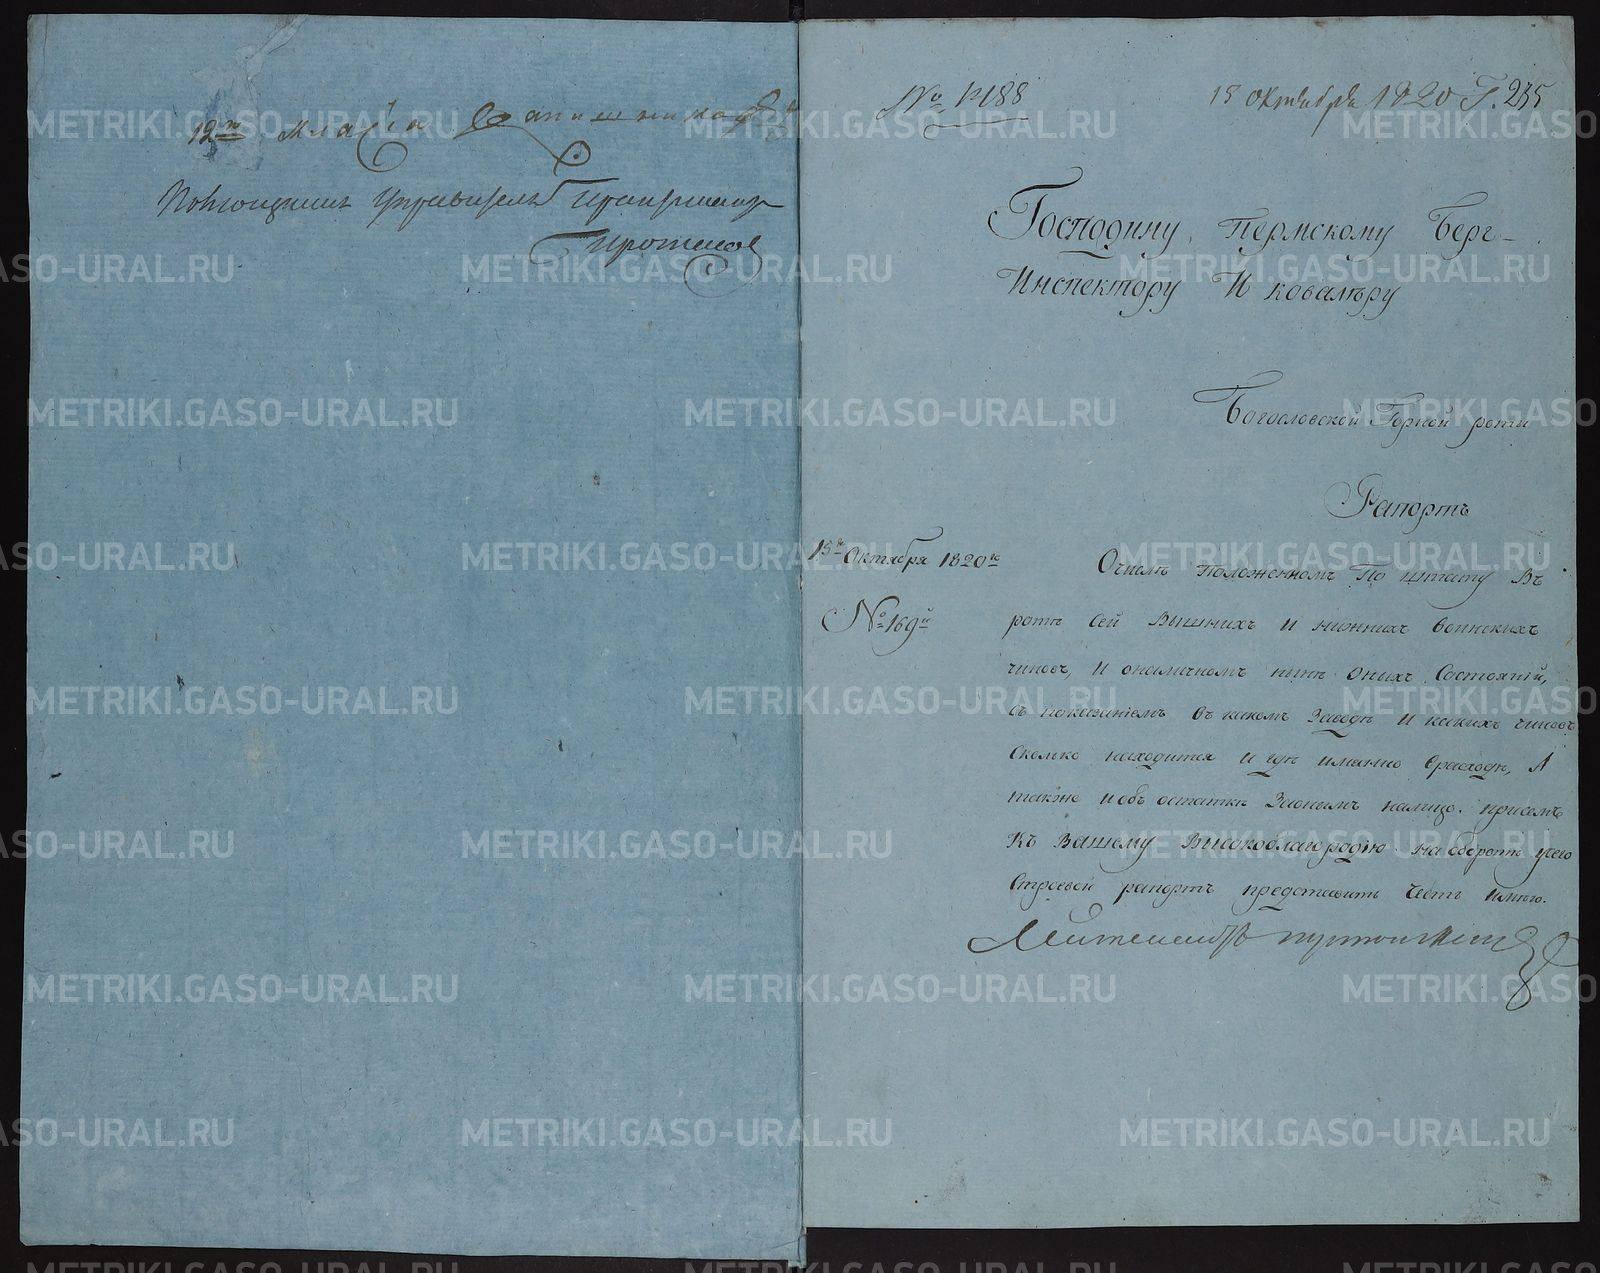 12го класса
Управитель
№ 1188
18 октября 1820 Г. 235
Господину Пермскому Берг-
Инспектору И ковалѣру
Богословской Горной роты
Рапортъ
15го Октября 1820го
№ 169й
Очислѣ положенномъ По штату Въ
ротѣ Сей Вышнихъ и нижнихъ воинскихъ
чиновъ, и оналичномъ нынѣ Оныхъ Состоянiй,
съ показанiемъ въ какомъ Заводѣ и какихъ чиновъ
Сколько находится и гдѣ имянно Врасходѣ, А
также и объ остаткѣ Заонымъ налицо. присемъ
Къ Вашему Высокоблагородiю на оборотѣ усего
Строевой рапортъ представить Честь имѣю.
METRIKI.GASO-URAL.RU